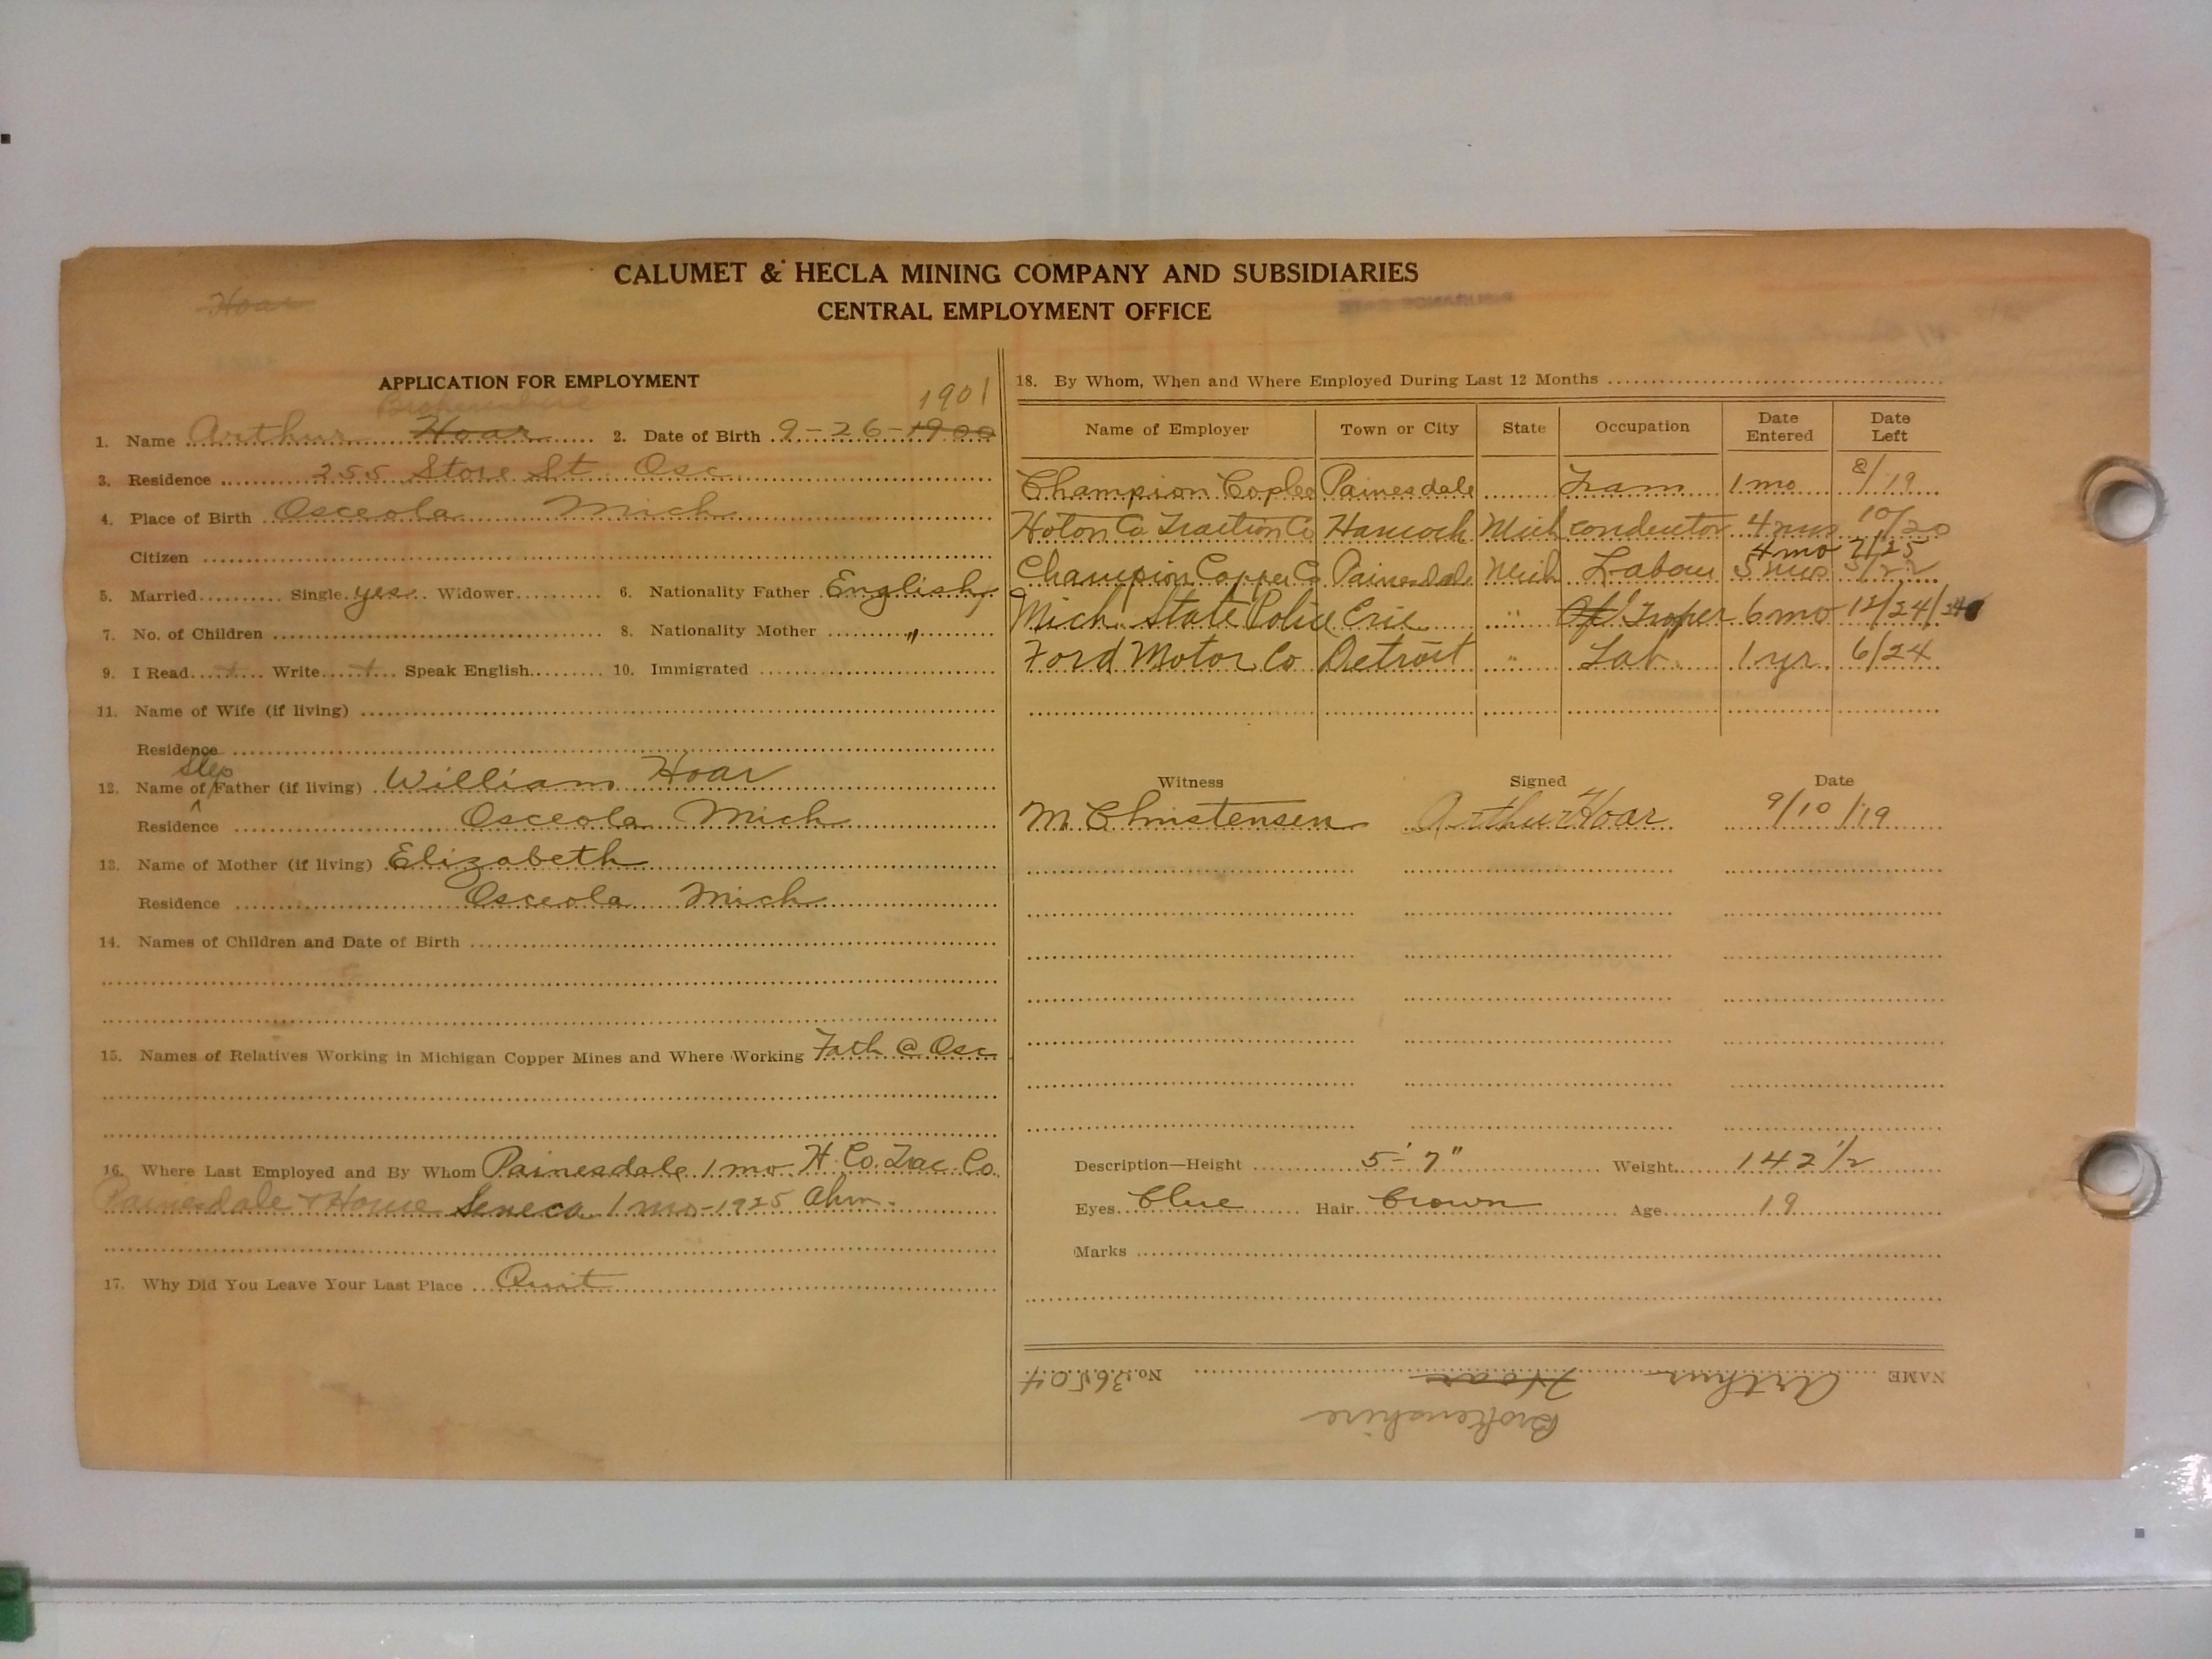 CALUMET & HECLA MINING COMPANY AND SUBSIDIARIES
CENTRAL EMPLOYMENT OFFICE
Hoar
APPLICATION FOR EMPLOYMENT
Brokenshire
1901
1. Name Arthur Hoar 2. Date of Birth 9-26-1900
3. Residence 255 Store St. Osc.
4. Place of Birth Osceola Mich
Citizen
5. Married Single yes Widower 6. Nationality Father English
7. No. of Children 8. Nationality Mother "
9. I Read + Write + Speak English 10. Immigrated
11. Name of Wife (if living)
Residence
Step
12. Name of Father (if living) William Hoar
Residence Osceola Mich
13. Name of Mother (if living) Elizabeth
Residence Osceola Mich
14. Names of Children and Date of Birth
15. Names of Relatives Working in Michigan Copper Mines and Where Working Fath @ Osc
16. Where Last Employed and By Whom Painesdale 1 mo. H. Co. Trac Co.
Painesdale + Home Seneca 1 mo-1925 Ahm.
17. Why Did You Leave Your Last Place Quit
18. By Whom, When and Where Employed During Last 12 Months
Name of Employer Town or City State Occupation Date Entered Date Left
Champion Copper Painesdale Tram 1 mo 8/19
Hoton Co Traction Co Hancock Mich conductor 4 mos 10/20
4 mo 7/25
Champion Copper Co Painesdale Mich Labour 5 mos 5/22
Mich. State Police Erie " Trooper 6 mo 12/24/24
Ford Motor Co Detroit " Lab. 1 yr. 6/24
Witness Signed Date
M Christensen Arthur Hoar 9/10/19
Description—Height 5'-7" Weight 142 1/2
Eyes Blue Hair Brown Age 19
Marks
NAME Arthur Hoar No. 36504
Brokenshire